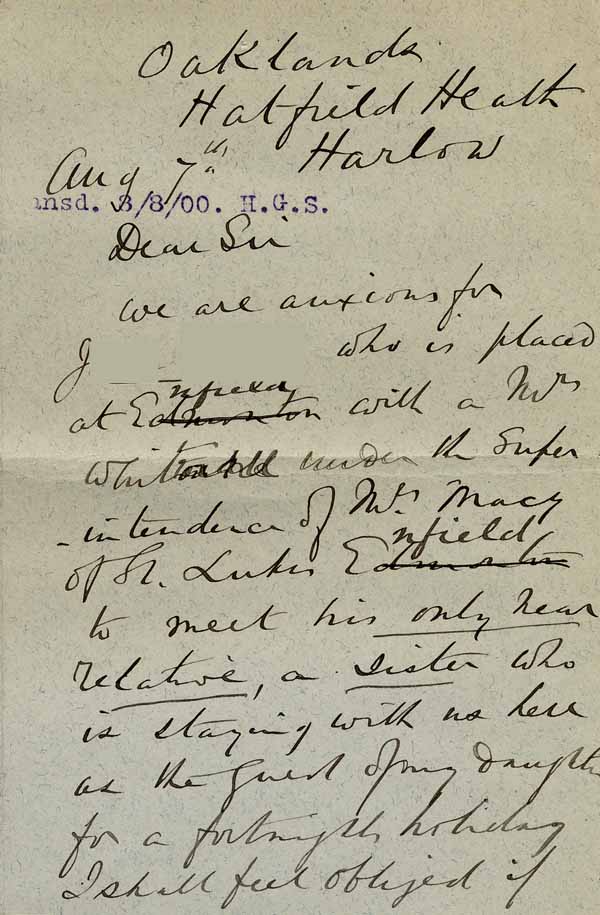 Oaklands
Hatfield Heath
Harlow
Aug 7th
ansd. 8/8/00. H.G.S.
Dear Sir
we are anxious for
J who is placed
at Enfield Edmonton with a Mrs
under the Super
-intendence of Mrs. Macy
of St. Lukes Enfield Edmonton
to meet his only near
relative, a sister who
is staying with us here
as the guest of my daughter
for a fortnights holiday
I shall feel obliged if